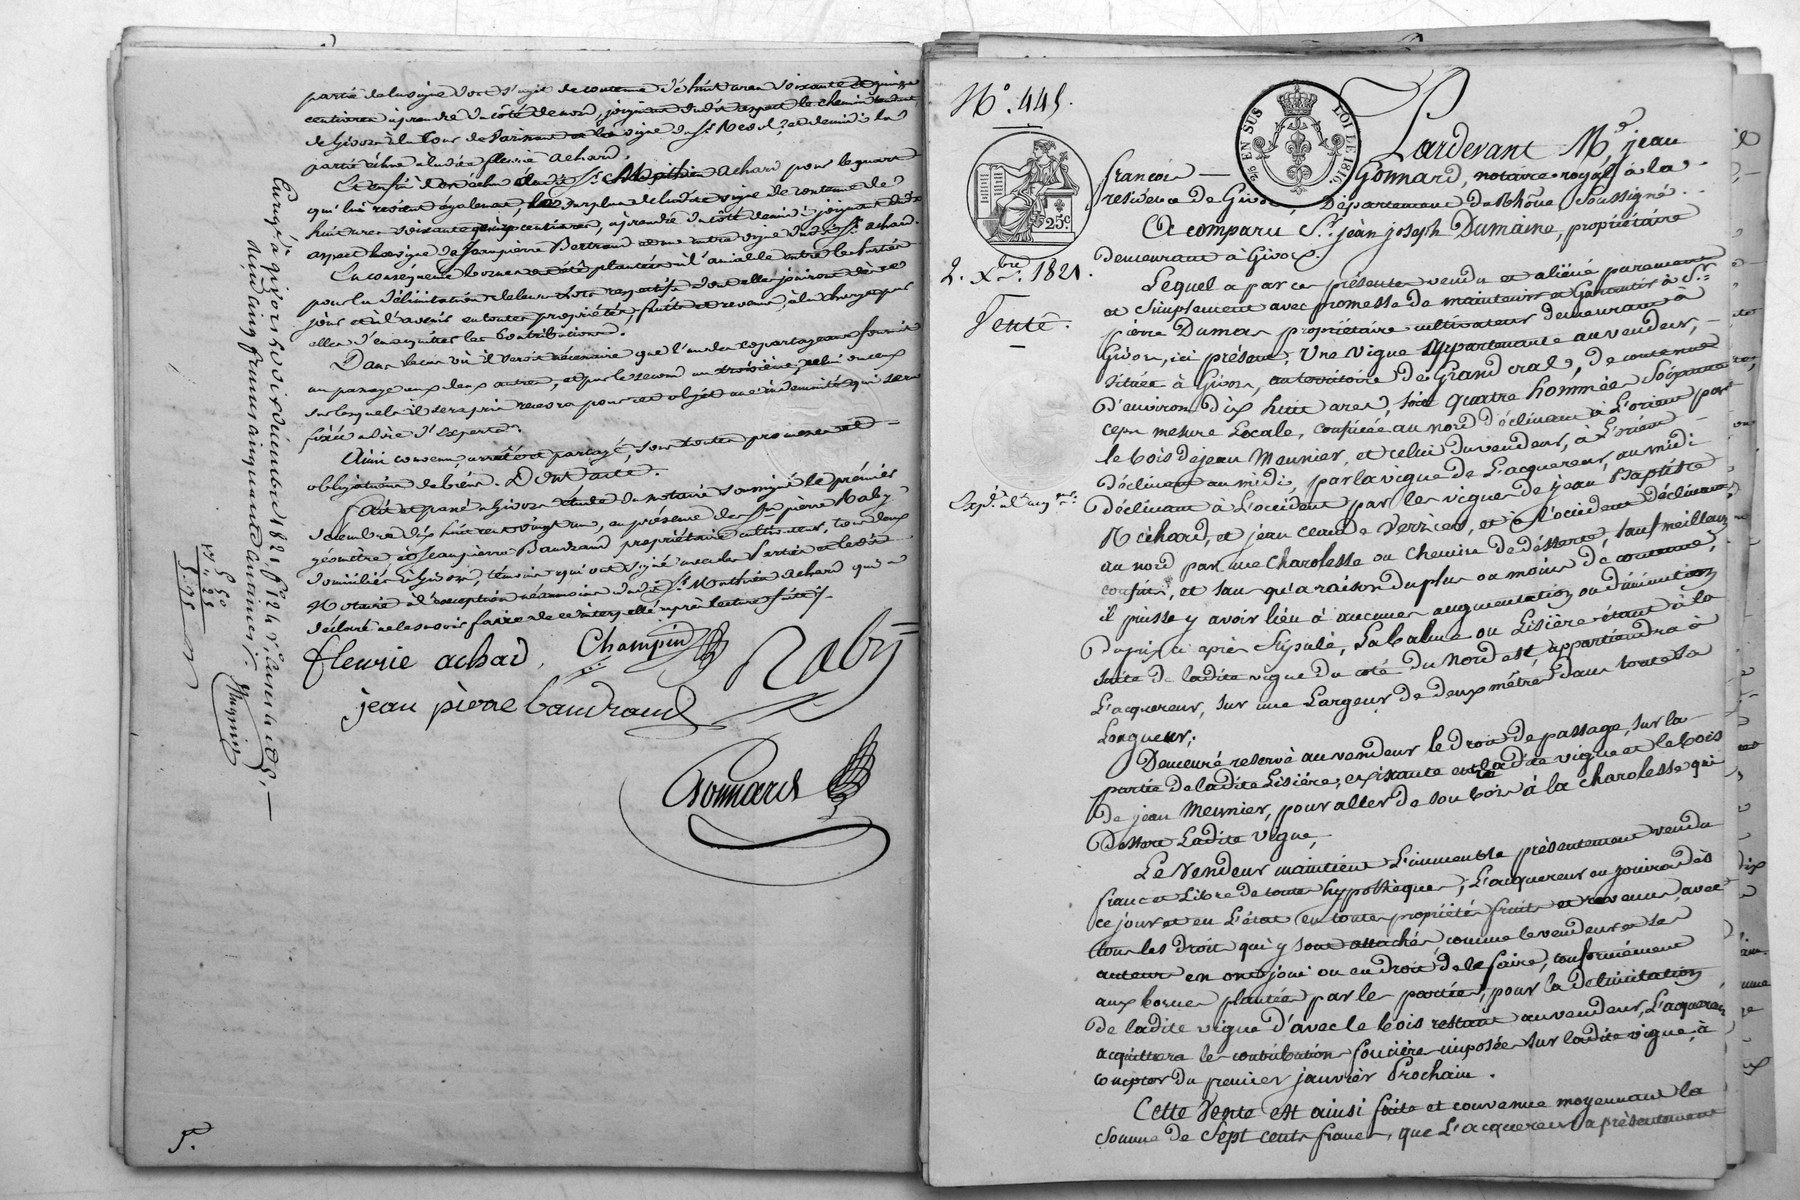 partie de la vigne dont s'agit de contenue de huit ares soixante et quinze
centiares à prendre du côté de nord, joignant du dit aspect le chemin tendant
de Givors à la Tour de Varissan et la vigne du Sr. et de midi la
partie échue à ladite fleurie achard.
Et enfin il est échu audit Sr. Mathieu achard pour le quart
qui lui revient également, le surplus de ladite vigne de contenue de
huit ares soixante quinze centiares, à prendre du côté de midi joignant dudit
aspect la vigne de Jeanpierre Bertrand et une autre vigne dudit Sr. achard.
En conséquence bornes ont été plantées à l'amiable entre les parties
pour la délimitation de leurs lots respectifs dont elles jouiront dès ce
jour et à l'avenir en toutes propriétés, fruits et revenus, à la charge par
elles d'en acquitter les contributions.
Dans le cas où il seroit nécessaire que l'un des copartageans fournit
un passage aux deux autres, ou par le second au troisième, celui ou ceux
sur lesquels il sera pris recevra pour cet objet une indemnité qui sera
fixée à dire d'experts.
Ainsi convenu, arrêté et partagé, sous toutes promesses et
obligations de biens. Dont acte.
Fait et passé à Givors étude du notaire soussigné le premier
décembre dix huit cent vingt un, en présence de Srs. pierre Raby
géomètre et Jeanpierre Baudrand propriétaire cultivateur, tous deux
domiciliés à Givors, témoins qui ont signé avec les parties et ledit
Notaire à l'exception néanmoins dudit Sr. Mathieu achard qui a
déclaré ne le savoir faire de ce interpellé après lecture faite.
fleurie achard, Champin Raby
jean pierre baudrand
Gonnard
Enregé. à givors le dix décembre 1821 fo. 124
5 50
5.
N.° 445.
25 c
EN SUS
LOI DE 1816
2. Xbre. 1821.
Vente.
Expéd. à l'acqr.
Pardevant Me. jean
françois Gonnard, notaire royal à la
résidence de Givors, Département du Rhône Soussigné
A comparu Sr. jean joseph Dumaine, propriétaire
demeurant à Givors.
Lequel a par ces présentes vendu et aliéné purement
et simplement avec promesse de maintenir et Garantir à Sr.
pierre Dumas propriétaire cultivateur demeurant à
Givors, ici présent, Une vigne appartenante au vendeur,
située à Givors, au territoire de Grand cral, de contenue
d'environ dix huit ares, soit quatre hommées Soixante
ceps mesure Locale, confinée au nord déclinant à L'orient par
le bois de jean Meunier, et celui du vendeur, à L'orient
déclinant au midi, par la vigne de L'acquéreur, au midi
déclinant à L'occident par les vignes de jean Baptiste
Richard, et jean claude Verzier, et à l'occident déclinant
au nord par une charolesse ou chemin de désserte, sauf meilleurs
confins, et sans qu'à raison du plus ou moins de contenue,
il puisse y avoir lieu à aucunes augmentation ou diminution
du prix ci après Stipulé, La balme ou Lisière étant à la
suite de ladite vigne du côté du Nord est, appartiendra à
L'acquéreur, sur une Largeur de deux mètres dans toute sa
Longueur;
Demeure réservé au vendeur le droit de passage, sur la
partie de ladite Lisière, existante entre ladite vigne et le bois
de jean Meunier, pour aller de son bois à la charolesse qui
Dessert Ladite vigne,
Le Vendeur maintient L'immeuble présentement vendu
franc et Libre de toutes hypothèques; L'acquéreur en jouira dès
ce jour et en L'état en toutes propriétés fruits et revenus, avec
tous les droit qui y sont attachés, comme le vendeur et ses
auteurs en ont joui ou eu droit de le faire, conformément
aux bornes plantées par les parties, pour la délimitation
de ladite vigne d'avec le bois restant au vendeur, L'acquéreur
acquittera les contributions foncières imposées sur ladite vigne, à
compter du premier janvier Prochain.
Cette Vente est ainsi faite et convenue moyennant la
Somme de Sept cents francs, que L'acquéreur a présentement